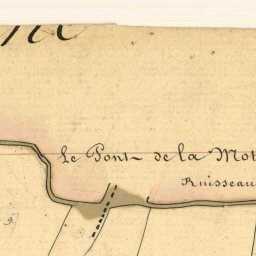 Le Pont de la Mot
Ruisseau